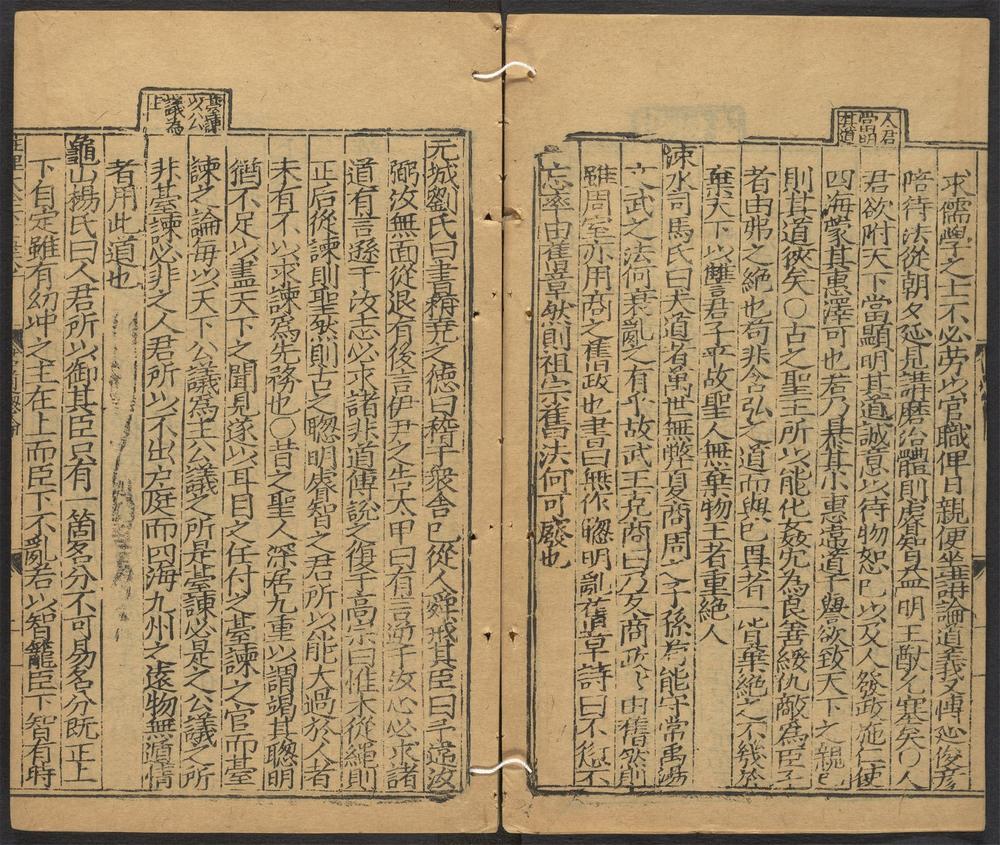 人君
當明
君道
求儒學之士不必勞以官職俾日親便坐講論道義又博延俊彥
陪侍法從朝夕延見講磨治體則睿智益明王猷允塞矣○人
君欲附天下當顯明其道誠意以待物恕己以及人發政施仁使
四海蒙其惠澤可也若乃暴其小惠違道干譽欲致天下之親己
則其道狹矣○古之聖王所以能化姦宄為良善綏仇敵為臣子
者由弗之絶也苟非含弘之道而與己異者一皆棄絶之不幾於
棄天下以讐君子乎故聖人無棄物王者重絶人
涑水司馬氏曰夫道者萬世無弊夏商周之子孫苟能守常禹湯
文武之法何衰亂之有乎故武王克商曰乃反商政政由舊然則
雖周室亦用商之舊政也書曰無作聰明亂舊章詩曰不愆不
忘率由舊章然則祖宗舊法何可廢也
臺諫
以公
議為
上
元城劉氏曰書稱堯之徳曰稽于衆舍己從人舜戒其臣曰予違汝
弼汝無面從退有後言伊尹之告太甲曰有言逆于汝心必求諸
道有言遜于汝志必求諸非道傅說之復于高宗曰惟木從繩則
正后從諫則聖然則古之聰明睿智之君所以能大過於人者
未有不以求諫爲先務也○昔之聖人深居九重以謂竭其聰明
猶不足以盡天下之聞見遂以耳目之任付之臺諫之官而臺
諫之論每以天下公議爲主公議之所是臺諫必是之公議之所
非臺諫必非之人君所以不出户庭而四海九州之遠物無遁情
者用此道也
龜山楊氏曰人君所以御其臣只有一箇名分不可易名分既正上
下自定雖有幼冲之主在上而臣下不亂若以智籠臣下智有時